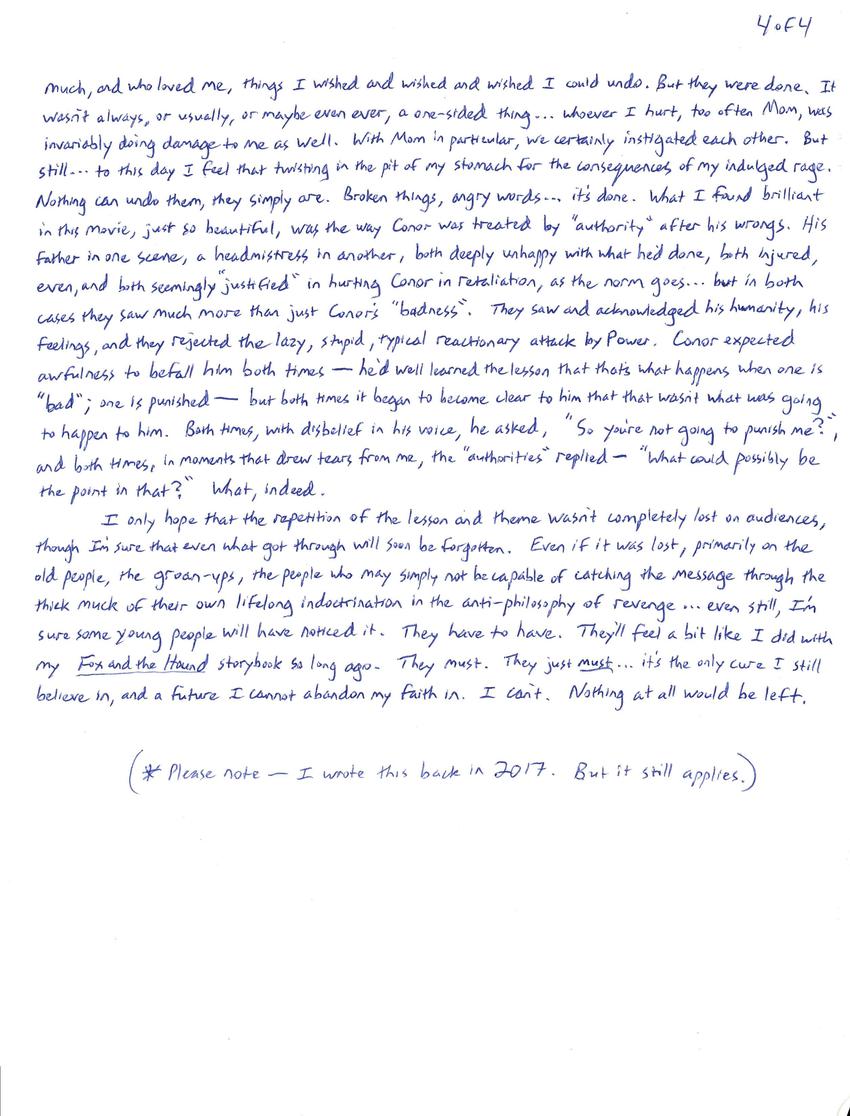 4 of 4
much, and who loved me, things I wished and wished and wished I could undo. But they were done. It
wasn't always, or usually, or maybe even ever, a one-sided thing... whoever I hurt, too often Mom, was
invariably doing damage to me as well. With Mom in particular, we certainly instigated each other. But
still... to this day I feel that twisting in the pit of my stomach for the consequences of my indulged rage.
Nothing can undo them, they simply are. Broken things, angry words... it's done. What I found brilliant
in this movie, just so beautiful, was the way Conor was treated by "authority" after his wrongs. His
father in one scene, a headmistress in another, both deeply unhappy with what he'd done, both injured,
even, and both seemingly "justified" in hurting Conor in retaliation, as the norm goes... but in both
cases they saw much more than just Conor's "badness". They saw and acknowledged his humanity, his
feelings, and they rejected the lazy, stupid, typical reactionary attack by Power. Conor expected
awfulness to befall him both times — he'd well learned the lesson that that's what happens when one is
"bad"; one is punished — but both times it began to become clear to him that that wasn't what was going
to happen to him. Both times, with disbelief in his voice, he asked, "So you're not going to punish me?",
and both times, in moments that drew tears from me, the "authorities" replied — "What could possibly be
the point in that?" What, indeed.
I only hope that the repetition of the lesson and theme wasn't completely lost on audiences,
though I'm sure that even what got through will soon be forgotten. Even if it was lost, primarily on the
old people, the groan-ups, the people who may simply not be capable of catching the message through the
thick muck of their own lifelong indoctrination in the anti-philosophy of revenge... even still, I'm
sure some young people will have noticed it. They have to have. They'll feel a bit like I did with
my Fox and the Hound storybook so long ago. They must. They just must... it's the only cure I still
believe in, and a future I cannot abandon my faith in. I can't. Nothing at all would be left.
(* Please note — I wrote this back in 2017. But it still applies.)